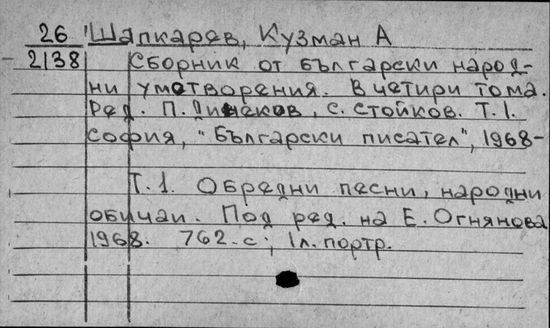 26 Шапкарев, Кузман А
2138 Сборник от български народ-
ни умотворения. В четири тома.
Ред. П. Динеков, С. Стойков. Т. 1.
София, "Български писател", 1968-
Т. 1. Обредни песни, народни
обичаи. Под ред. на Е. Огнянова
1968. 762. с; 1л. портр.